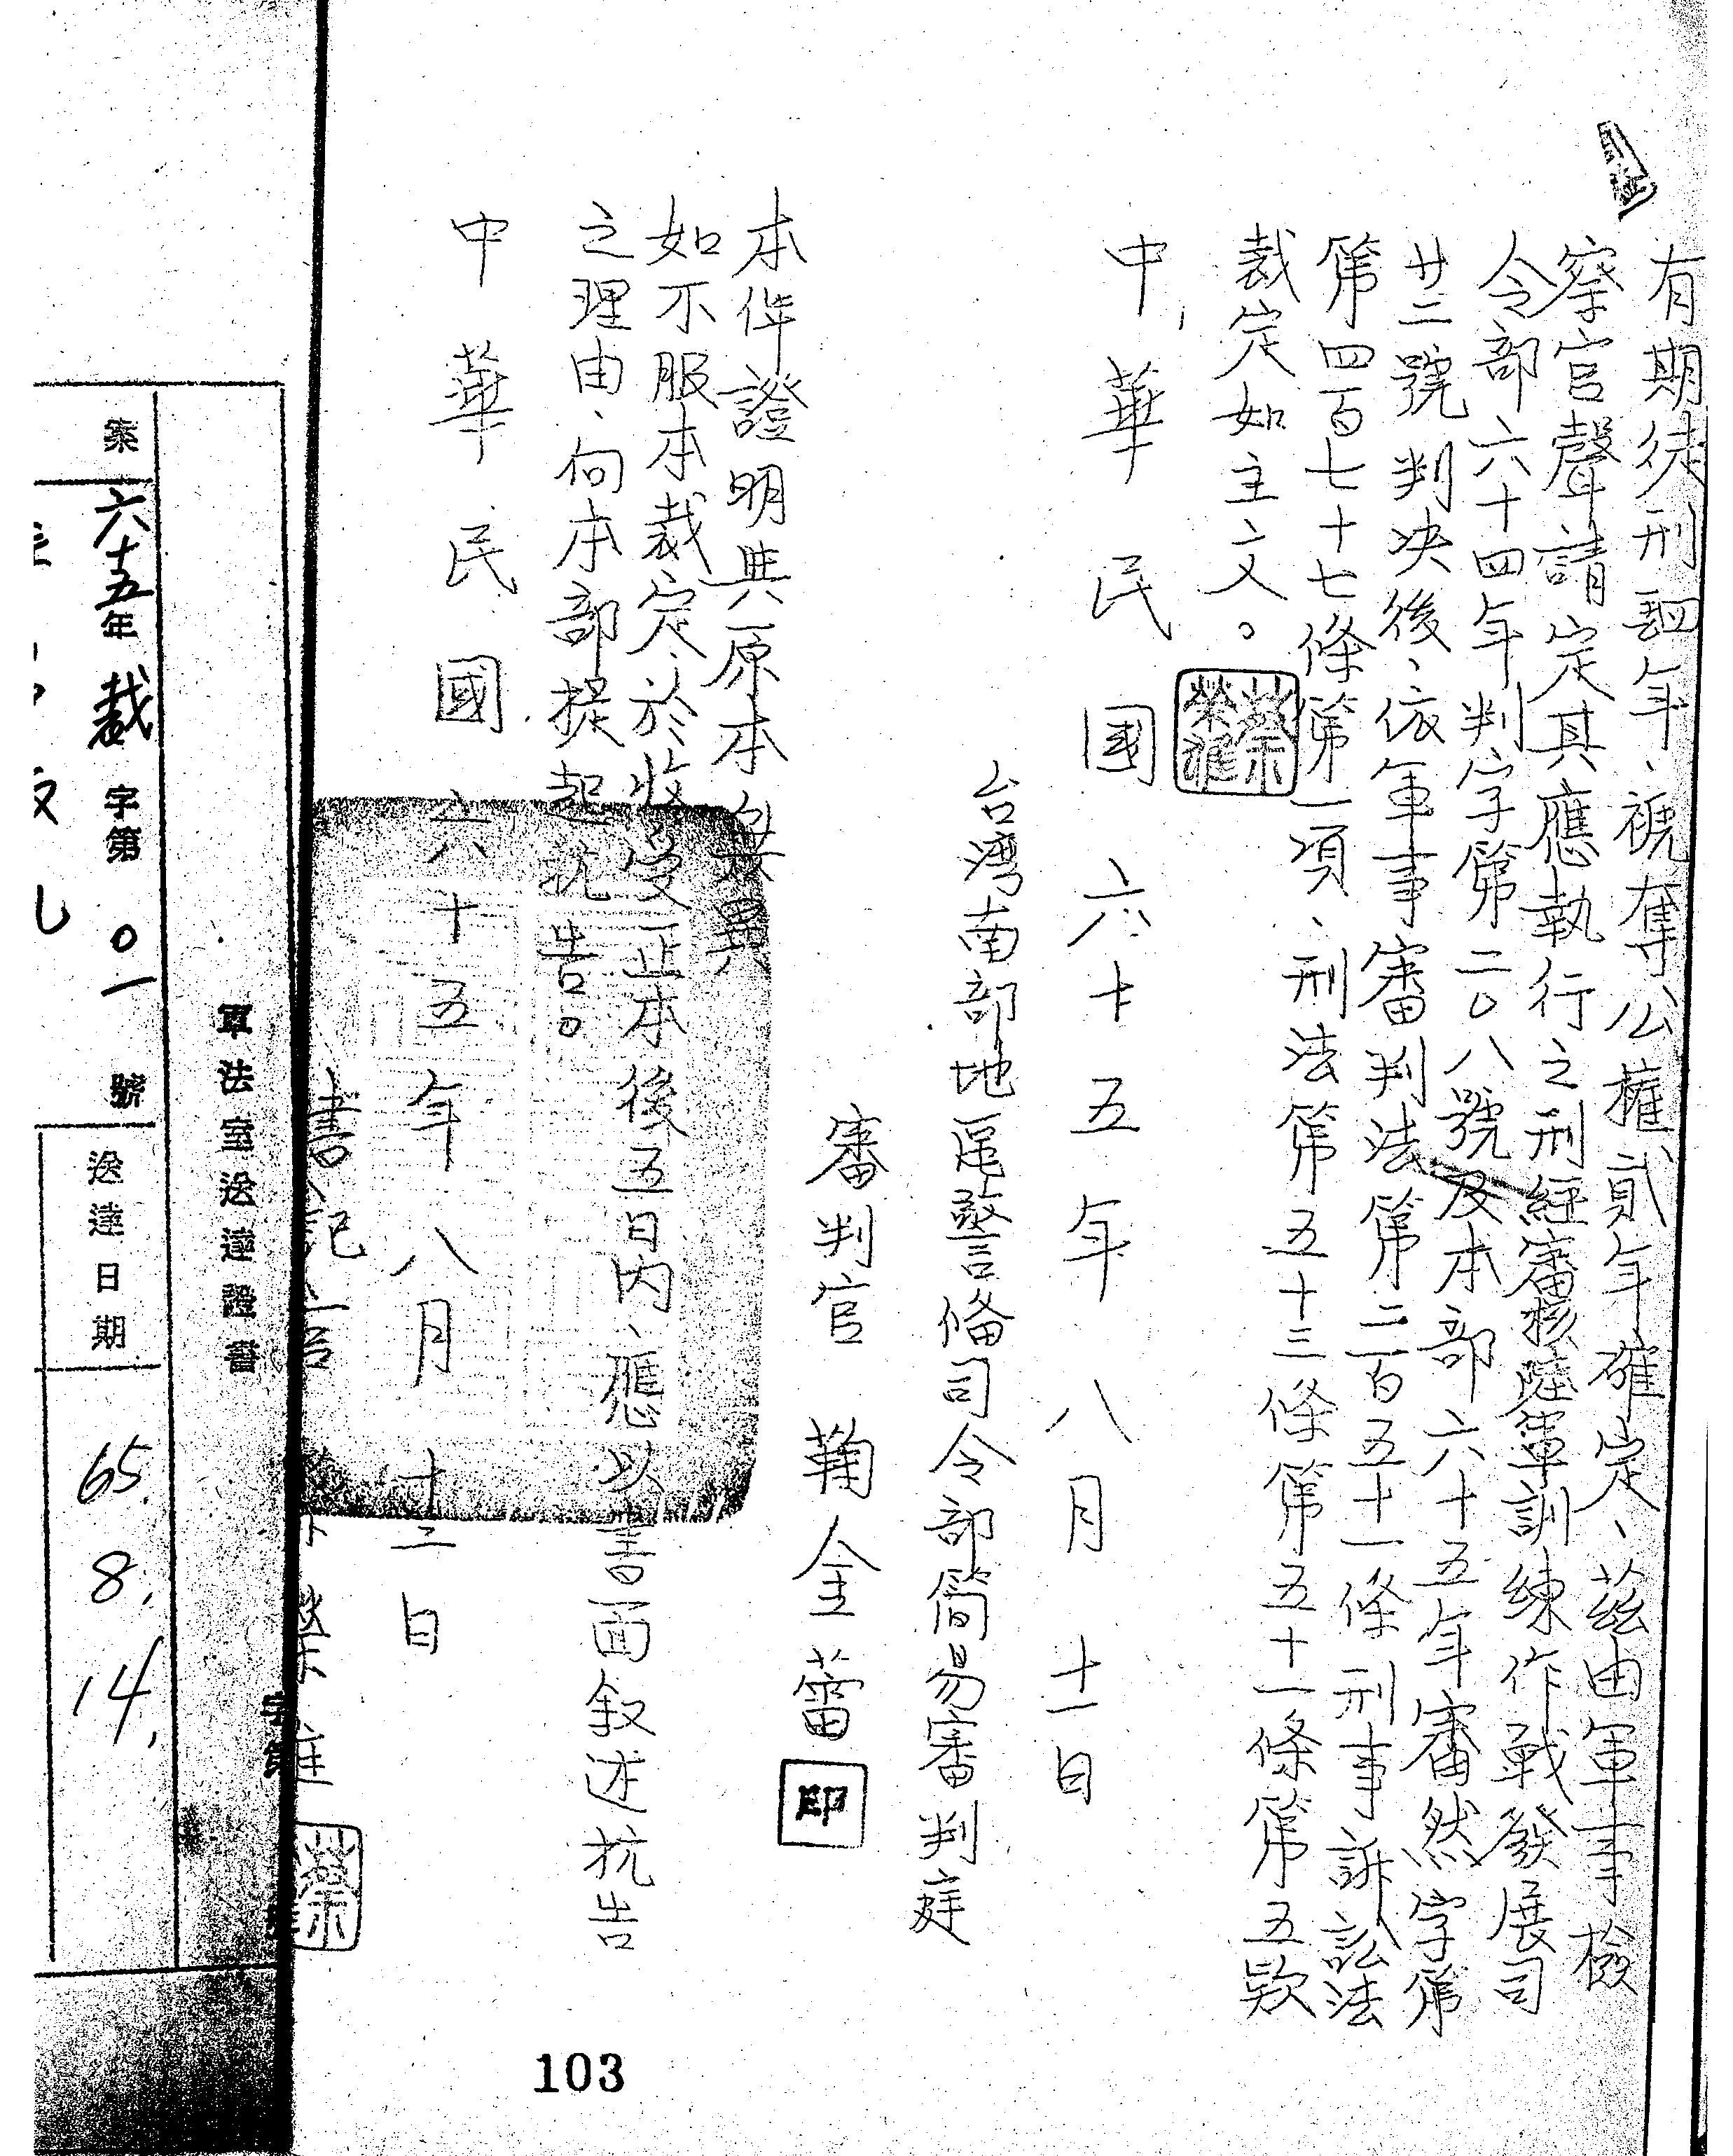 有期徒刑肆年、褫奪公權貳年確定、茲由軍事檢
察官聲請定其應執行之刑經審核陸軍訓練作戰發展司
令部六十四年判字第二〇八號及本部六十五年審然字第
廿二號判決後、依軍事審判法第二百五十一條刑事訴訟法
第四百七十七條第一項、刑法第五十三條第五十一條第五款
裁定如主文。
中華民國六十五年八月十一日
台湾南部地區警備司令部簡易審判庭
審判官 鞠金蕾 印
本件證明與原本無異
如不服本裁定、於收受正本後五日內、應以書面叙述抗告
之理由、向本部提起抗告。
中華民國六十五年八月十三日
書記官 榮進
軍法室送達證書
案 六十五年裁字第〇一號
送達日期 65. 8. 14.
103